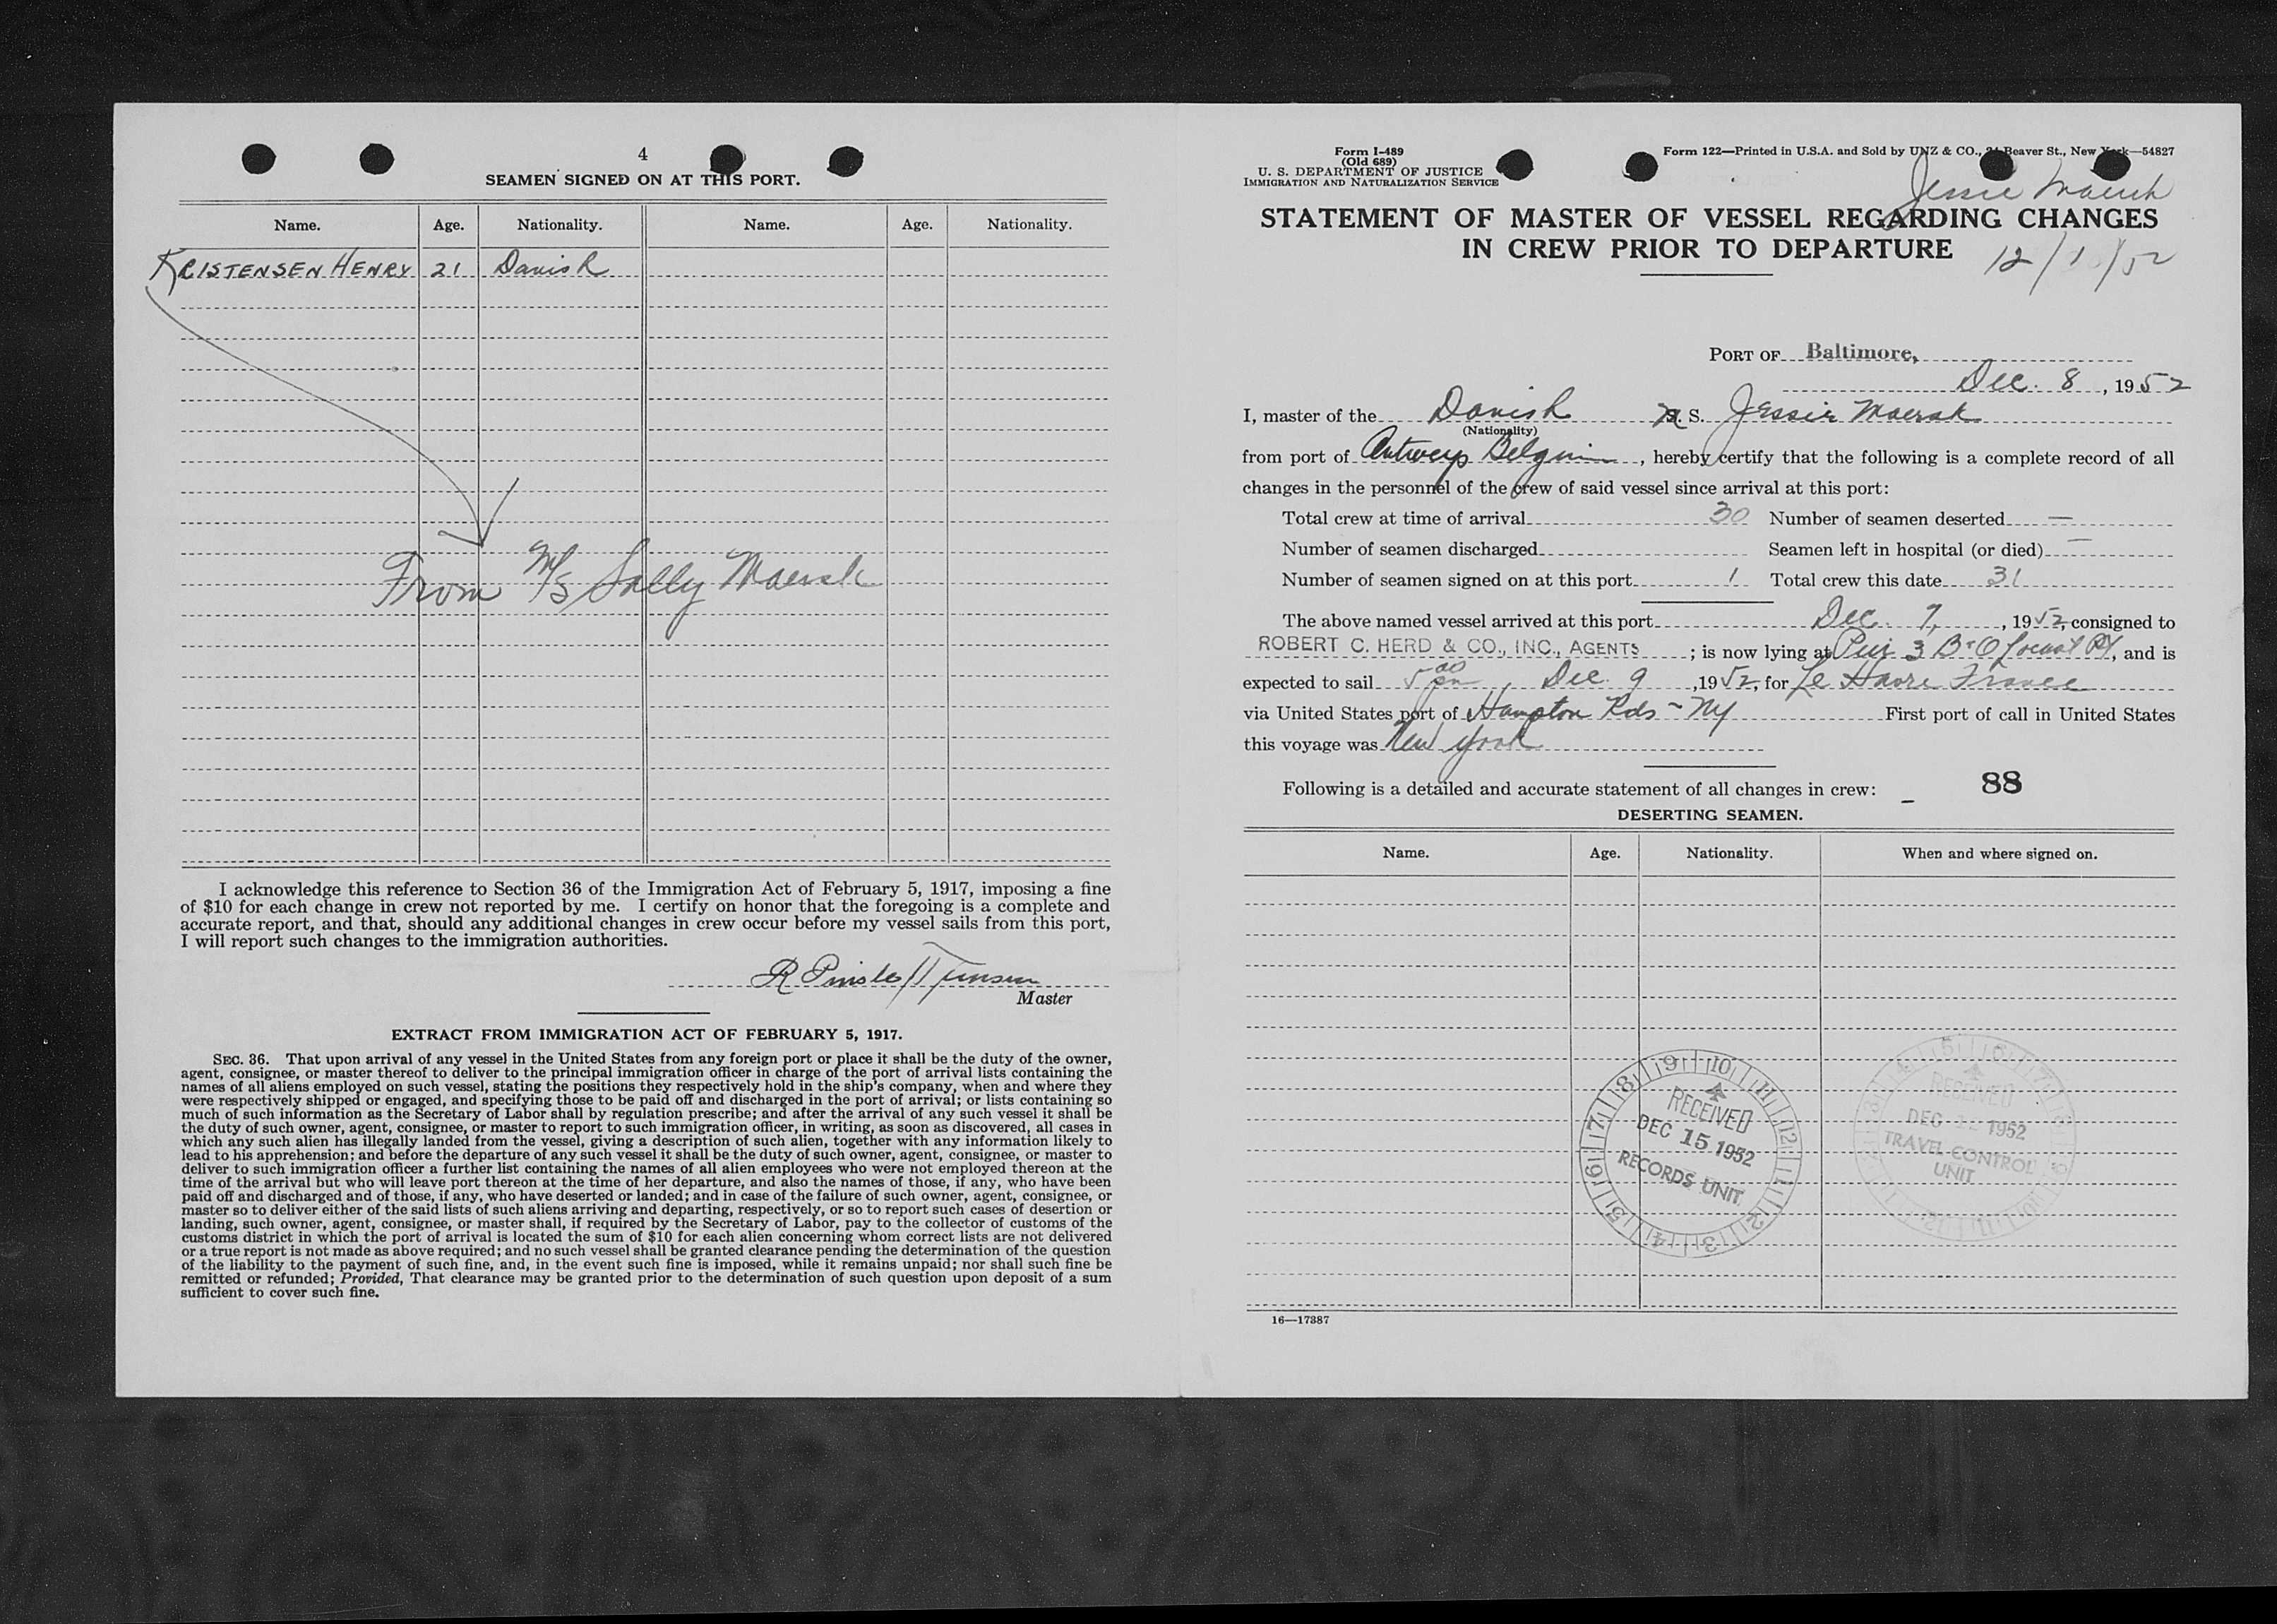 4
SEAMEN SIGNED ON AT THIS PORT.
Name. Age. Nationality. Name. Age. Nationality.
KRISTENSEN HENRY 21 Danish
From M/S Sally Maersk
I acknowledge this reference to Section 36 of the Immigration Act of February 5, 1917, imposing a fine
of $10 for each change in crew not reported by me. I certify on honor that the foregoing is a complete and
accurate report, and that, should any additional changes in crew occur before my vessel sails from this port,
I will report such changes to the immigration authorities.
R
Master
EXTRACT FROM IMMIGRATION ACT OF FEBRUARY 5, 1917.
SEC. 36. That upon arrival of any vessel in the United States from any foreign port or place it shall be the duty of the owner,
agent, consignee, or master thereof to deliver to the principal immigration officer in charge of the port of arrival lists containing the
names of all aliens employed on such vessel, stating the positions they respectively hold in the ship's company, when and where they
were respectively shipped or engaged, and specifying those to be paid off and discharged in the port of arrival; or lists containing so
much of such information as the Secretary of Labor shall by regulation prescribe; and after the arrival of any such vessel it shall be
the duty of such owner, agent, consignee, or master to report to such immigration officer, in writing, as soon as discovered, all cases in
which any such alien has illegally landed from the vessel, giving a description of such alien, together with any information likely to
lead to his apprehension; and before the departure of any such vessel it shall be the duty of such owner, agent, consignee, or master to
deliver to such immigration officer a further list containing the names of all alien employees who were not employed thereon at the
time of the arrival but who will leave port thereon at the time of her departure, and also the names of those, if any, who have been
paid off and discharged and of those, if any, who have deserted or landed; and in case of the failure of such owner, agent, consignee, or
master so to deliver either of the said lists of such aliens arriving and departing, respectively, or so to report such cases of desertion or
landing, such owner, agent, consignee, or master shall, if required by the Secretary of Labor, pay to the collector of customs of the
customs district in which the port of arrival is located the sum of $10 for each alien concerning whom correct lists are not delivered
or a true report is not made as above required; and no such vessel shall be granted clearance pending the determination of the question
of the liability to the payment of such fine, and, in the event such fine is imposed, while it remains unpaid; nor shall such fine be
remitted or refunded; Provided, That clearance may be granted prior to the determination of such question upon deposit of a sum
sufficient to cover such fine.
Form I-489
(Old 689)
U. S. DEPARTMENT OF JUSTICE
IMMIGRATION AND NATURALIZATION SERVICE
Form 122—Printed in U.S.A. and Sold by UNZ & CO., 24 Beaver St., New York—54827
Jessie Maersk
STATEMENT OF MASTER OF VESSEL REGARDING CHANGES
IN CREW PRIOR TO DEPARTURE
PORT OF Baltimore,
Dec. 8, 1952
I, master of the Danish M. S. Jessie Maersk
(Nationality)
from port of Antwerp Belgium, hereby certify that the following is a complete record of all
changes in the personnel of the crew of said vessel since arrival at this port:
Total crew at time of arrival 30 Number of seamen deserted —
Number of seamen discharged Seamen left in hospital (or died) —
Number of seamen signed on at this port 1 Total crew this date 31
The above named vessel arrived at this port Dec. 7, 1952, consigned to
ROBERT C. HERD & CO., INC., AGENTS; is now lying at Pier 3 B&O Locust Pt, and is
expected to sail 5 00 pm, Dec. 9, 1952, for Le Havre France
via United States port of Hampton Rds - NY First port of call in United States
this voyage was New York
Following is a detailed and accurate statement of all changes in crew: 88
DESERTING SEAMEN.
Name. Age. Nationality. When and where signed on.
RECEIVED
DEC 15 1952
RECORDS UNIT
RECEIVED
DEC 1952
TRAVEL CONTROL
UNIT
16—17387